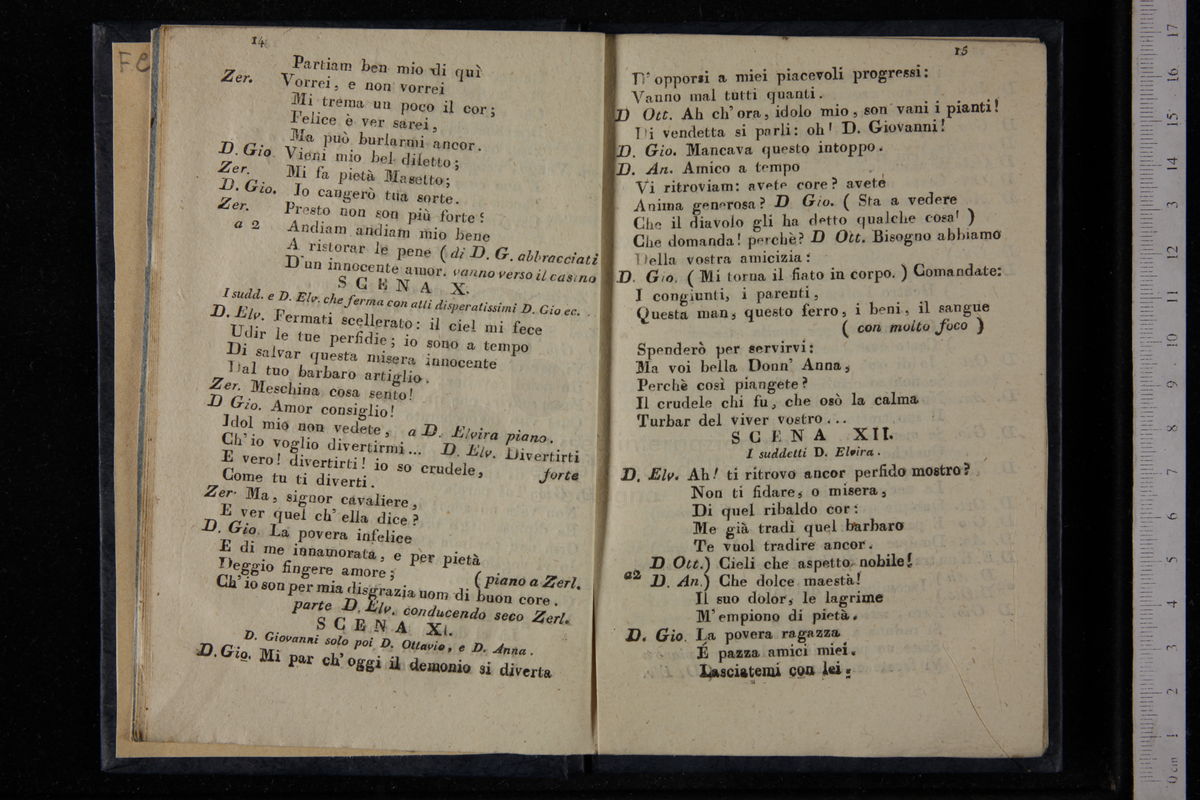 F.C
14
Partiam ben mio di quì
Zer. Vorrei, e non vorrei
Mi trema un poco il cor;
Felice è ver sarei,
Ma può burlarmi ancor.
D. Gio. Vieni mio bel diletto;
Zer. Mi fa pietà Masetto;
D. Gio. Io cangerò tua sorte.
Zer. Presto non son più forte:
a 2 Andiam andiam mio bene
A ristorar le pene (di D. G. abbracciati
D'un innocente amor. vanno verso il casino
SCENA X.
I sudd. e D. Elv. che ferma con atti disperatissimi D. Gio ec.
D. Elv. Fermati scellerato: il ciel mi fece
Udir le tue perfidie; io sono a tempo
Di salvar questa misera innocente
Dal tuo barbaro artiglio.
Zer. Meschina cosa sento!
D Gio. Amor consiglio!
Idol mio non vedete, a D. Elvira piano.
Ch'io voglio divertirmi... D. Elv. Divertirti
E vero! divertirti! io so crudele, forte
Come tu ti diverti.
Zer. Ma, signor cavaliere,
E ver quel ch'ella dice?
D. Gio. La povera infelice
E di me innamorata, e per pietà
Deggio fingere amore; (piano a Zerl.
Ch'io son per mia disgrazia uom di buon core.
parte D. Elv. conducendo seco Zerl.
SCENA XI.
D. Giovanni solo poi D. Ottavio, e D. Anna.
D. Gio. Mi par ch'oggi il demonio si diverta
15
D'opporsi a miei piacevoli progressi:
Vanno mal tutti quanti.
D Ott. Ah ch'ora, idolo mio, son vani i pianti!
Di vendetta si parli: oh! D. Giovanni!
D. Gio. Mancava questo intoppo.
D. An. Amico a tempo
Vi ritroviam: avete core? avete
Anima generosa? D Gio. ( Sta a vedere
Che il diavolo gli ha detto qualche cosa! )
Che domanda! perchè? D Ott. Bisogno abbiamo
Della vostra amicizia:
D. Gio. ( Mi torna il fiato in corpo. ) Comandate:
I congiunti, i parenti,
Questa man, questo ferro, i beni, il sangue
( con molto foco )
Spenderò per servirvi:
Ma voi bella Donn' Anna,
Perchè così piangete?
Il crudele chi fu, che osò la calma
Turbar del viver vostro...
SCENA XII.
I suddetti D. Elvira.
D. Elv. Ah! ti ritrovo ancor perfido mostro?
Non ti fidare, o misera,
Di quel ribaldo cor:
Me già tradì quel barbaro
Te vuol tradire ancor.
D Ott.) Cieli che aspetto nobile!
a2 D. An.) Che dolce maestà!
Il suo dolor, le lagrime
M'empiono di pietà.
D. Gio La povera ragazza
É pazza amici miei.
Lasciatemi con lei:
0 cm 1 2 3 4 5 6 7 8 9 10 11 12 13 14 15 16 17